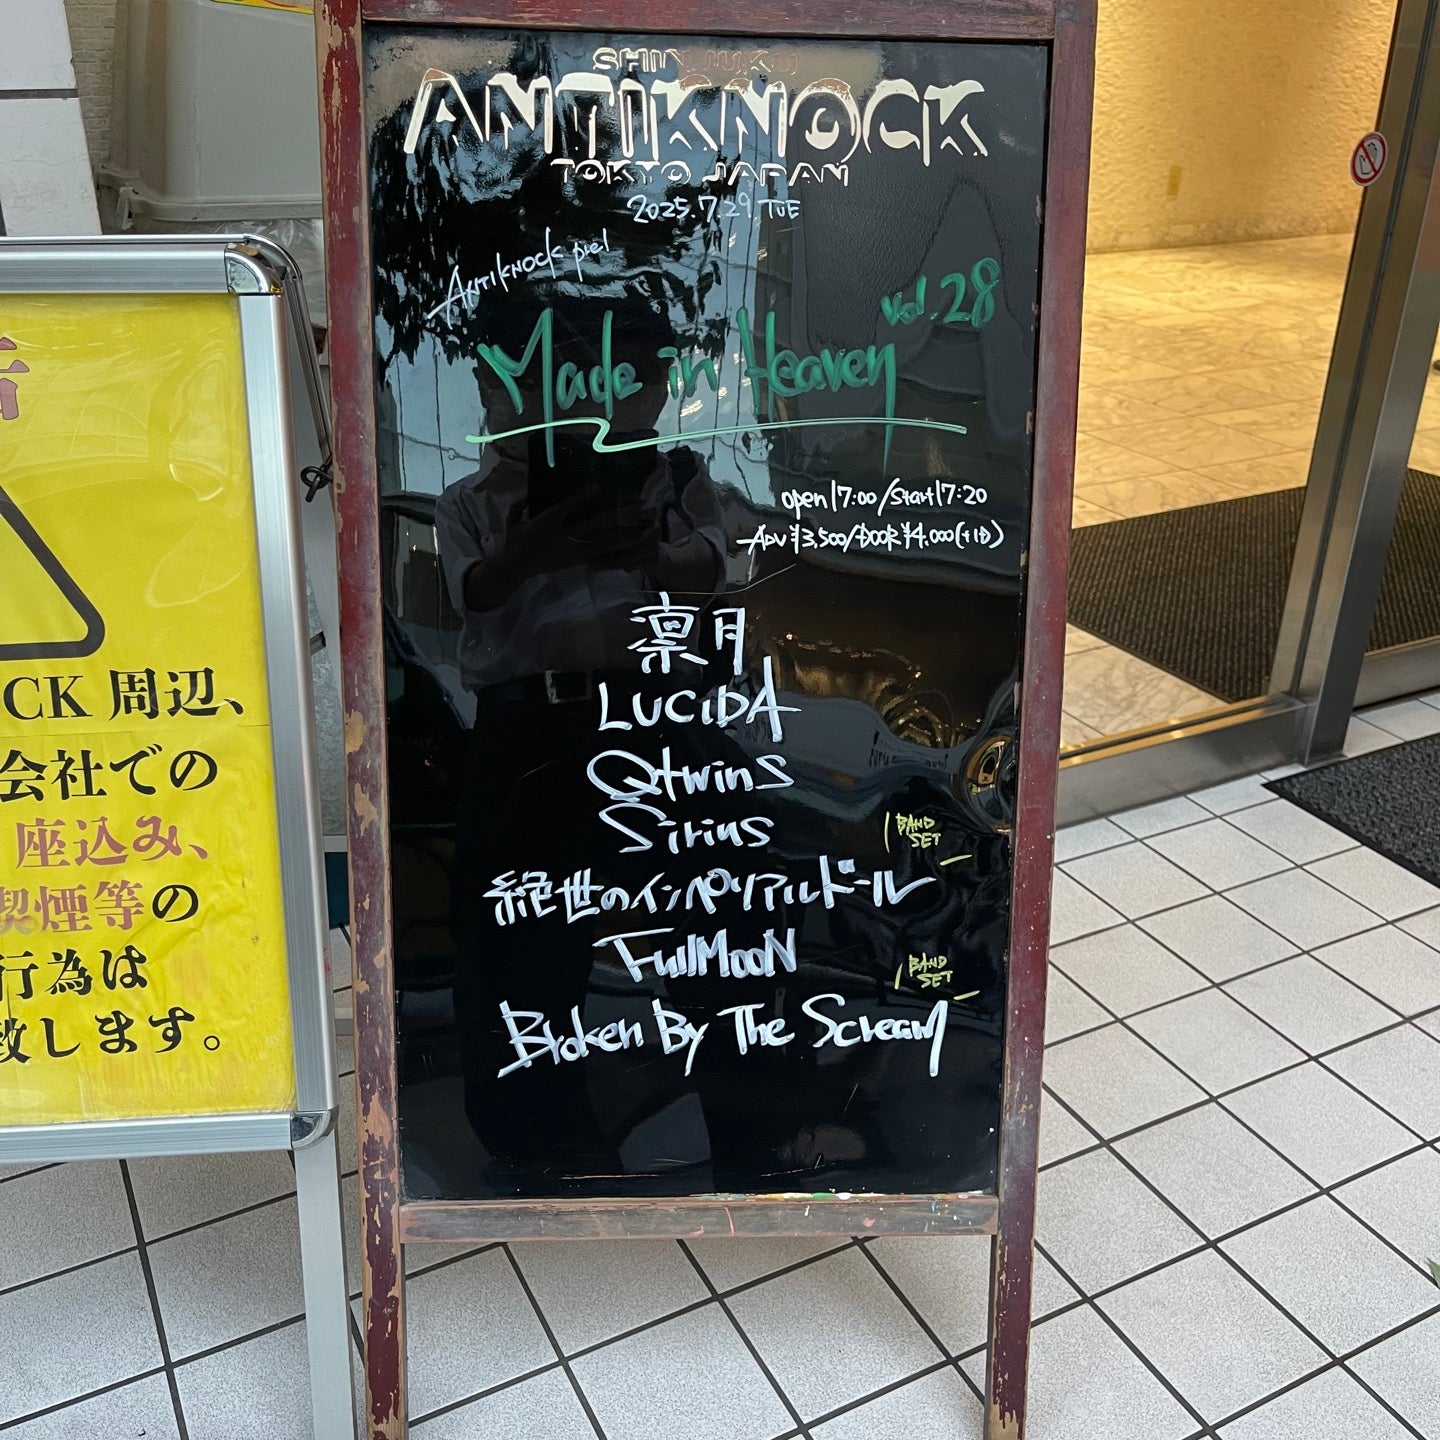 SHINJUKU
ANTIKNOCK
TOKYO JAPAN
2025.7.29.TUE
ANTIKNOCK pre!
Made in Heaven vol.28
open17:00/Start17:20
ADV ¥3,500/DOOR ¥4,000(+1D)
凛月
LUCIDA
Qtwins
Sirius
BAND
SET
絶世のインペリアルドール
FullMooN
BAND
SET
Broken By The Scream
CK 周辺、
会社での
座込み、
喫煙等の
行為は
致します。